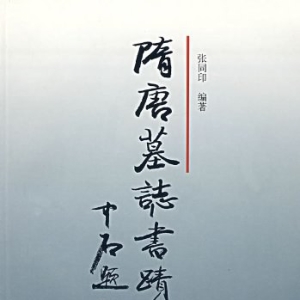 隋唐墓誌書蹟
中石题
张同印 编著